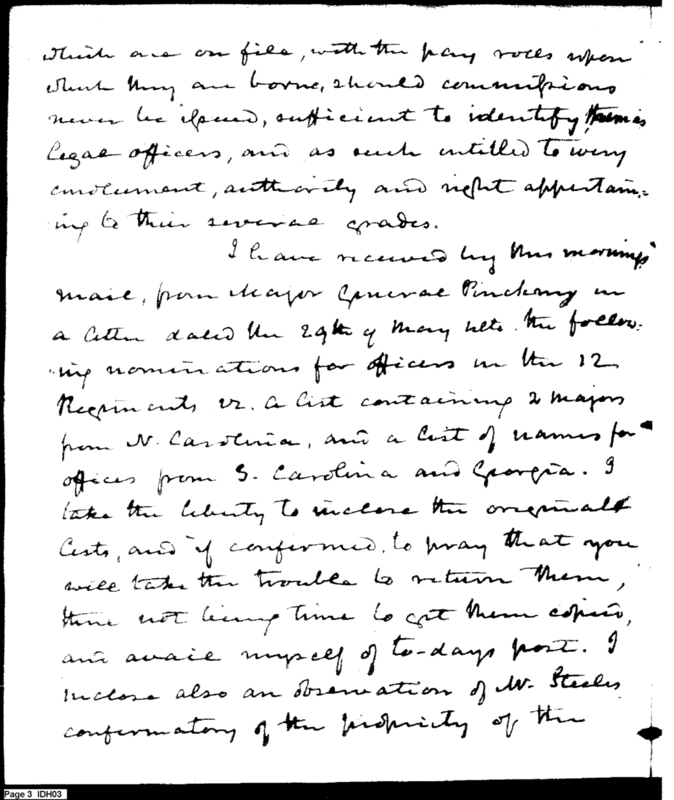 which are on file, with the pay rolls upon
which they are borne, should commissions
never be issued, sufficient to identify them as
legal officers, and as such entitled to every
emolument, authority and right appertain:=
ing to their several grades.
I have received by this mornings
mail, from Major General Pinckney in
a letter dated the 29th of May ulto. the follow:
ing nominations for officers in the 12
Regiments vz. a list containing 2 majors
from N. Carolina, and a list of names for
offices from S. Carolina and Georgia. I
take the liberty to inclose the original
lists, and if confirmed, to pray that you
will take the trouble to return them,
there not being time to get them copied,
and avail myself of to-days post. I
inclose also an observation of Mr. Steeles
confirmatory of the propriety of the
Page 3 IDH03